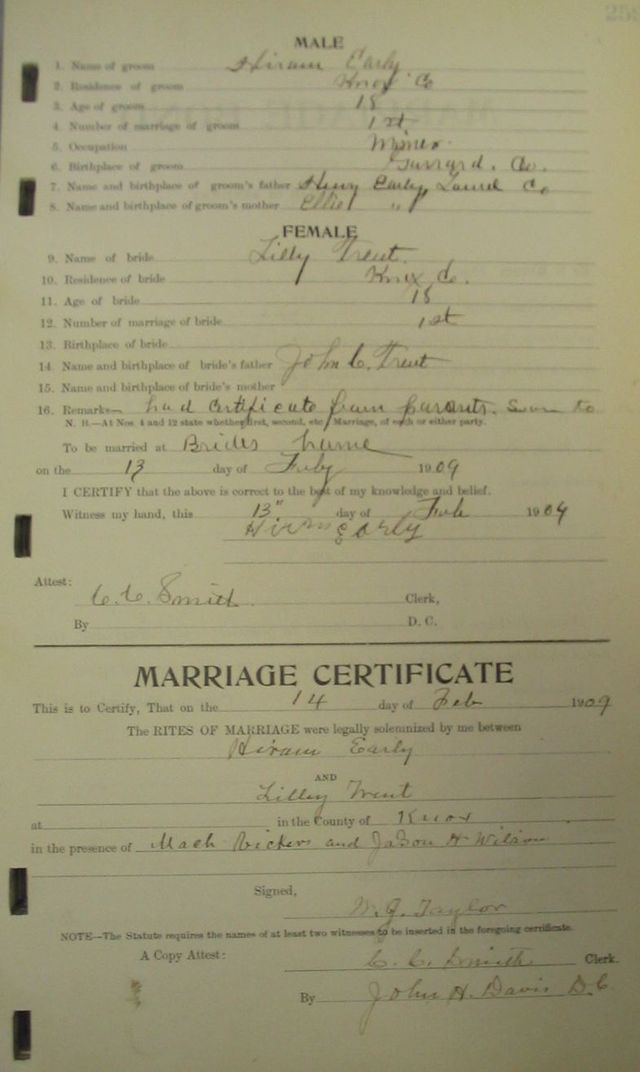 MALE
1. Name of groom Hiram Early
2. Residence of groom Knox Co
3. Age of groom 18
4. Number of marriage of groom 1st
5. Occupation Miner
6. Birthplace of groom Garrard. Co.
7. Name and birthplace of groom's father Henry Early, Laurel Co
8. Name and birthplace of groom's mother Ellie "
FEMALE
9. Name of bride Lilly Trent.
10. Residence of bride Knox Co.
11. Age of bride 18
12. Number of marriage of bride 1st
13. Birthplace of bride
14. Name and birthplace of bride's father John C. Trent
15. Name and birthplace of bride's mother
16. Remarks had certificate from parents. Sworn to
N. B.—At Nos. 4 and 12 state whether first, second, etc., Marriage, of each or either party.
To be married at Brides home
on the 13 day of Feby 1909
I CERTIFY that the above is correct to the best of my knowledge and belief.
Witness my hand, this 13" day of Feb 1909
Hirm Early
Attest:
C. C. Smith Clerk,
By D. C.
MARRIAGE CERTIFICATE
This is to Certify, That on the 14 day of Feb 1909
The RITES OF MARRIAGE were legally solemnized by me between
Hiram Early
AND
Lilley Trent
at in the County of Knox
in the presence of Mack Vickers and Jason H Wilson
Signed,
W. J. Taylor
NOTE—The Statute requires the names of at least two witnesses to be inserted in the foregoing certificate.
A Copy Attest: C. C. Smith Clerk.
By John H. Davis D.C.